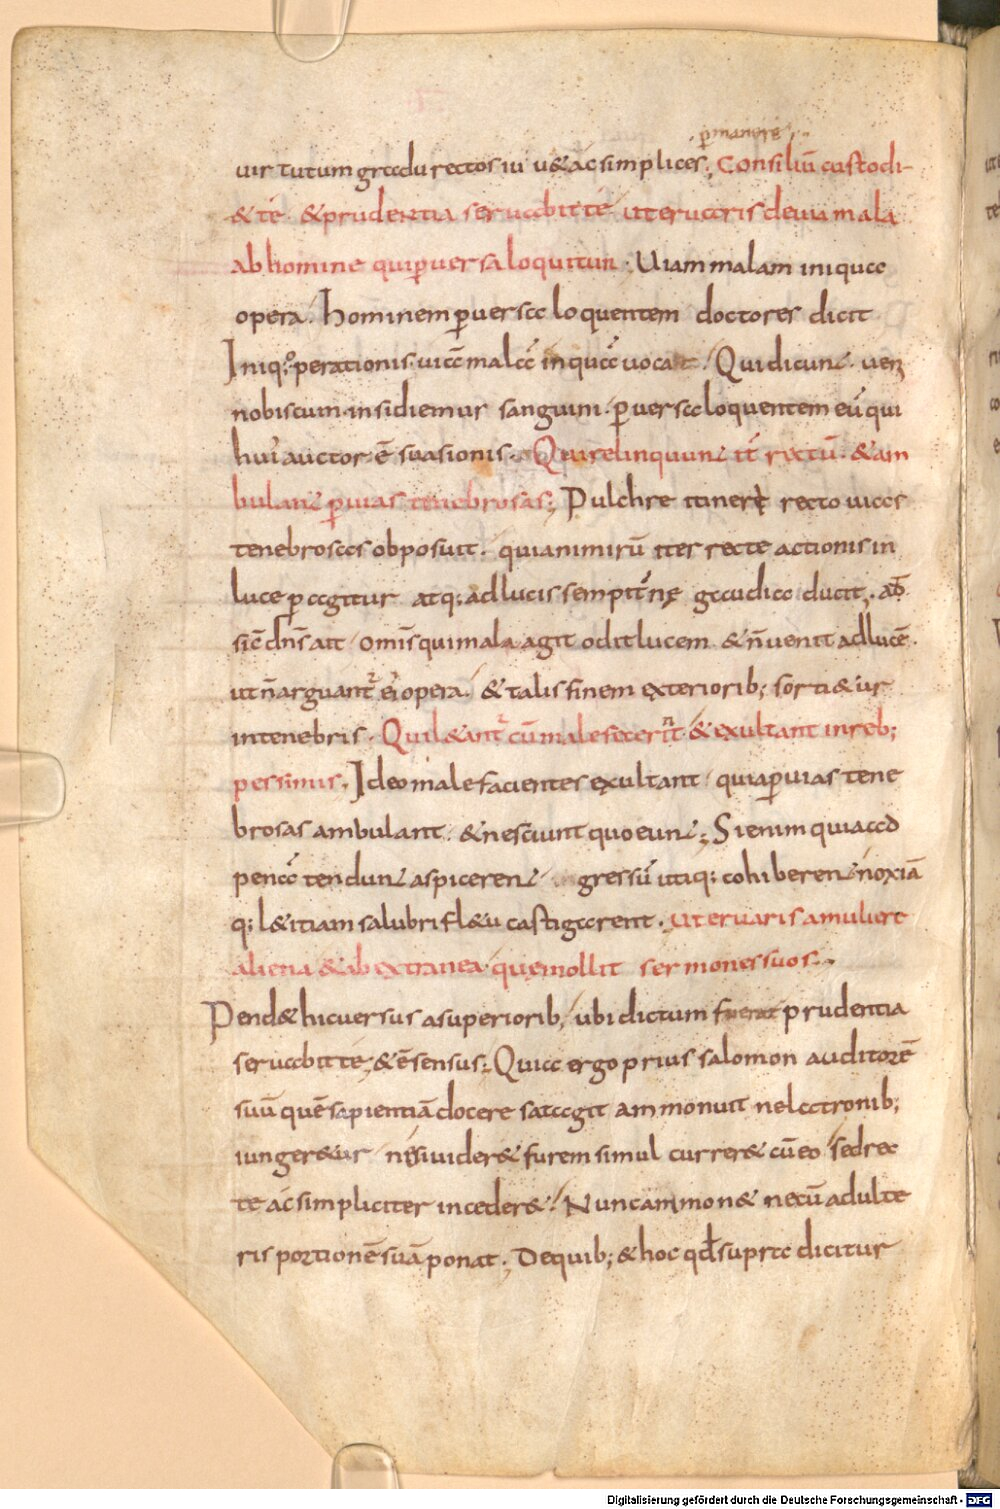 ꝑmanere
uirtutum gradu rectos iuu&acsimplices; Consiliū custodi-
&te &prudentia seruabitte uteruarisdeuiamala
abhomine quiꝑuersaloquitur· Uiammalam iniqua
opera. hominemꝑuersa loquentem doctores dicit
Iniq; oꝑerationis· uiā malā inquā uocat. Quidicunt· ueni
nobiscum· insidiemur sanguini· ꝑuersaloquentem eū qui
hui᾽auctor·ē suasionis· Quirelinquunt it̄ rectū· &am
bulant ꝑuias tenebrosas; Pulchre itinere recto uias
tenebrosas obposuit. quianimirū iter recte actionis in
luce ꝑagitur atq; adlucis sempit̄nę gaudia ducit,
sic̄ dn̄s ait omīs quimala agit oditlucem &n̄uenit adlucē·
utn̄arguant᷑ ei᾽opera. &talis finem exteriorib; sorti&ur
intenebris· Quil&ant᷑ cū malefecerīt &exultant inreb;
pessimis, Ideo malefacientes exultant quiaꝑuias tene
brosas ambulant. &nesciunt quoeunt; Sienim quiaad
penā tendunt aspicerent gressū utiq; cohiberent noxiā
q; l&itiam salubri fl&u castigarent. uteruaris amuliere
aliena &ab extranea· quęmollit sermones suos·
Pend& hicuersus asuperiorib; ubi dictum fuerat prudentia
seruabitte; &ēsensus; Quia ergo prius salomon auditorē
suū quē sapientiā docere satagit ammonuit nelatronib;
iunger&ur nesiuider& furem simul currer& cū eo sed rec
te acsimpliciter inceder&. Nuncammon& necū adulte
ris portionē suā ponat; Dequib; &hoc qđ supra dicitur
Digitalisierung gefördert durch die Deutsche Forschungsgemeinschaft - DFG